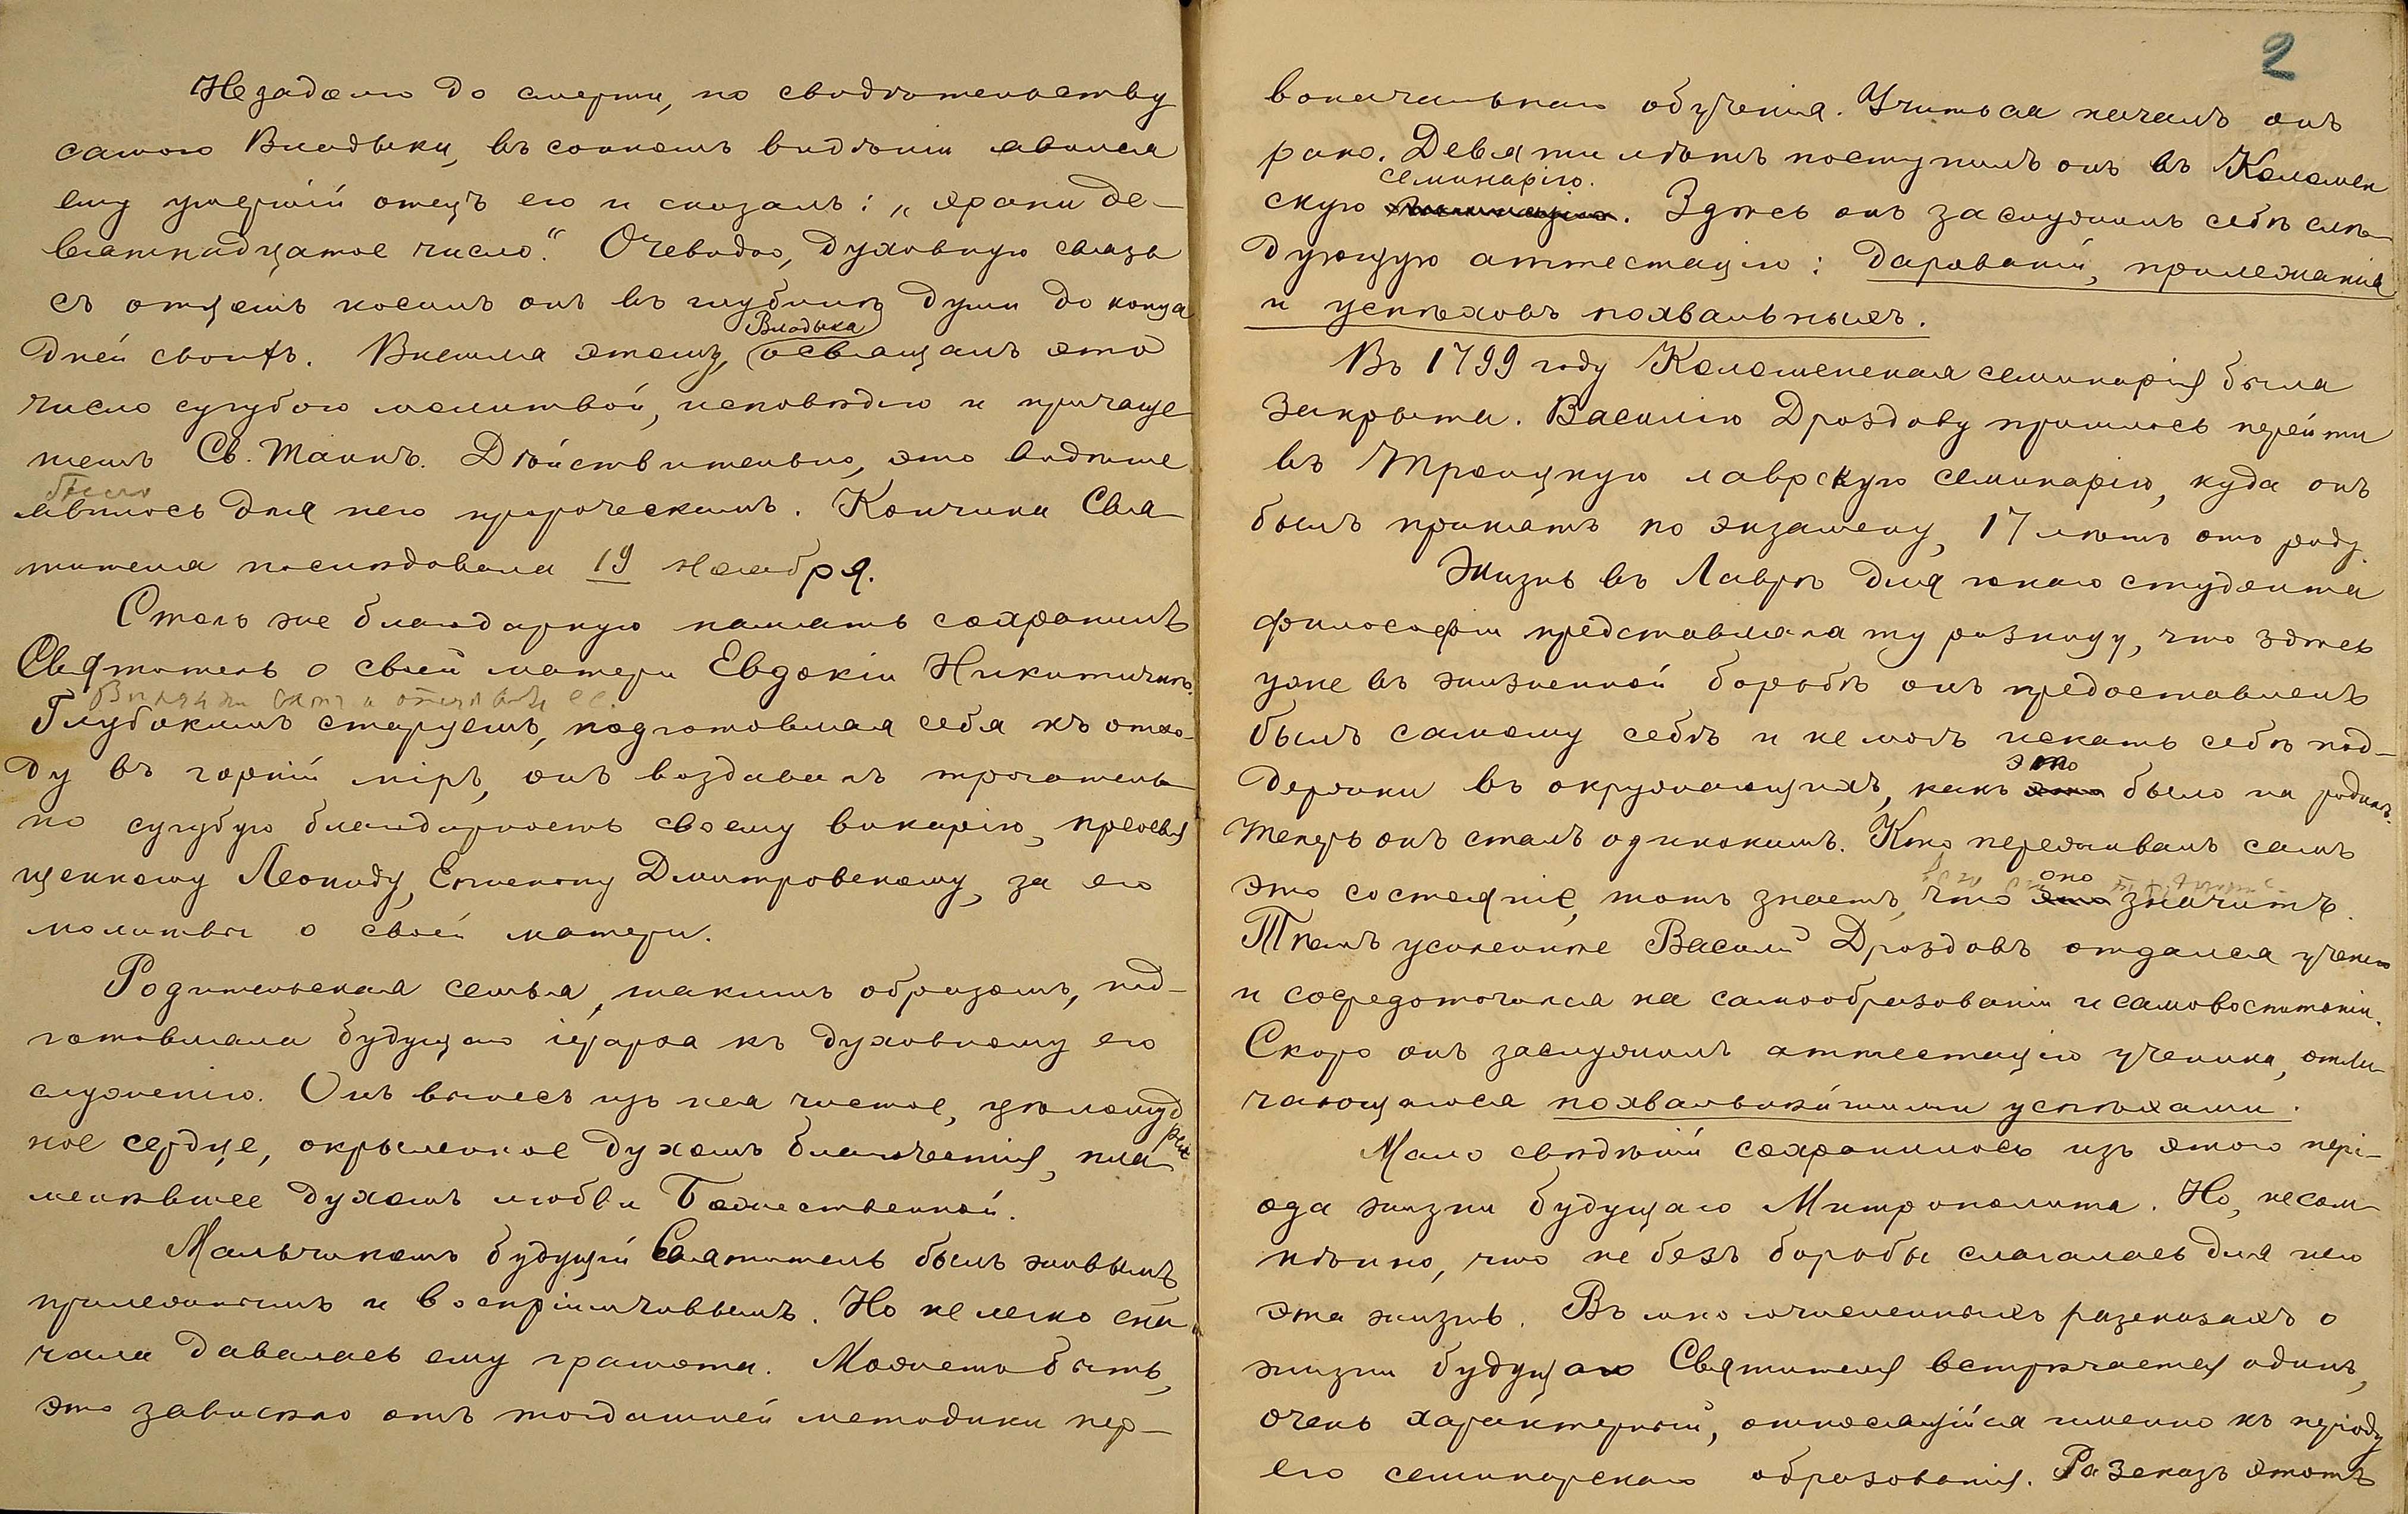 Незадолго до смерти, по свидѣтельству
самого Владыки, въ сонномъ видѣніи явился
ему умершій отецъ его и сказалъ: „храни де-
вятнадцатое число“. Очевидно, духовную связь
съ отцемъ носилъ онъ въ глубинѣ души до конца
Владыка
дней своихъ. Внемля этому, освящалъ это
число сугубою молитвой, исповѣдію и причаще
ніемъ Св. Таинъ. Дѣйствительно, это видѣніе
было
явилось для него пророческимъ. Кончина Свя-
тителя послѣдовала 19 ноября.
Столь же благодарную память сохранилъ
Святитель о своей матери Евдокіи Никитичнѣ.
Глубокимъ старцемъ, подготовляя себя къ отхо-
ду въ горній міръ, онъ воздавалъ трогатель-
но сугубую благодарность своему викарію, преосвя
щенному Леониду, Епископу Дмитровскому, за его
молитвы о своей матери.
Родительская семья, такимъ образомъ, под-
готовляла будущаго іерарха къ духовному его
служенію. Онъ вынесъ изъ нея чистое, цѣломуд
рен
ное сердце, окрыленное духомъ благочестія, пла-
менѣвшее духомъ любви Божественной.
Мальчикомъ будущій Святитель былъ живымъ
прилежнымъ и воспріимчивымъ. Но не легко сна
чала давалась ему грамота. Можетъ быть,
это зависѣло отъ тогдашней методики пер-
2
воначальнаго обученія. Учиться началъ онъ
рано. Девяти лѣтъ поступилъ онъ въ Коломен
семинарію.
скую. Здѣсь онъ заслужилъ себѣ слѣ-
дующую аттестацію: дарованій, прилежанія
и успѣховъ похвальныхъ.
Въ 1799 году Коломенская семинарія была
закрыта. Василію Дроздову пришлось перейти
въ Троицкую лаврскую семинарію, куда онъ
былъ принятъ по экзамену, 17 лѣтъ отъ роду.
Жизнь въ Лаврѣ для юнаго студента
философіи представляла ту разницу, что здѣсь
уже въ жизненной борьбѣ онъ предоставленъ
былъ самому себѣ и не могъ искать себѣ под-
это
держки въ окружающихъ, какъ было на родинѣ.
Теперь онъ сталъ одинокимъ. Кто переживалъ самъ
оно
это состояніе, тотъ знаетъ, что это значитъ.
Тѣмъ усиленнѣе Василій Дроздовъ отдался ученію
и сосредоточился на самообразованіи и самовоспитаніи.
Скоро онъ заслужилъ аттестацію ученика, отли-
чающагося похвальнѣйшими успѣхами.
Мало свѣдѣній сохранилось изъ этого пері-
ода жизни будущаго Митрополита. Но, несом-
нѣнно, что не безъ борьбы слагалась для него
эта жизнь. Въ многочисленныхъ разсказахъ о
жизни будущаго Святителя встрѣчается одинъ,
очень характерный, относящійся именно къ періоду
его семинарскаго образованія. Разсказъ этотъ